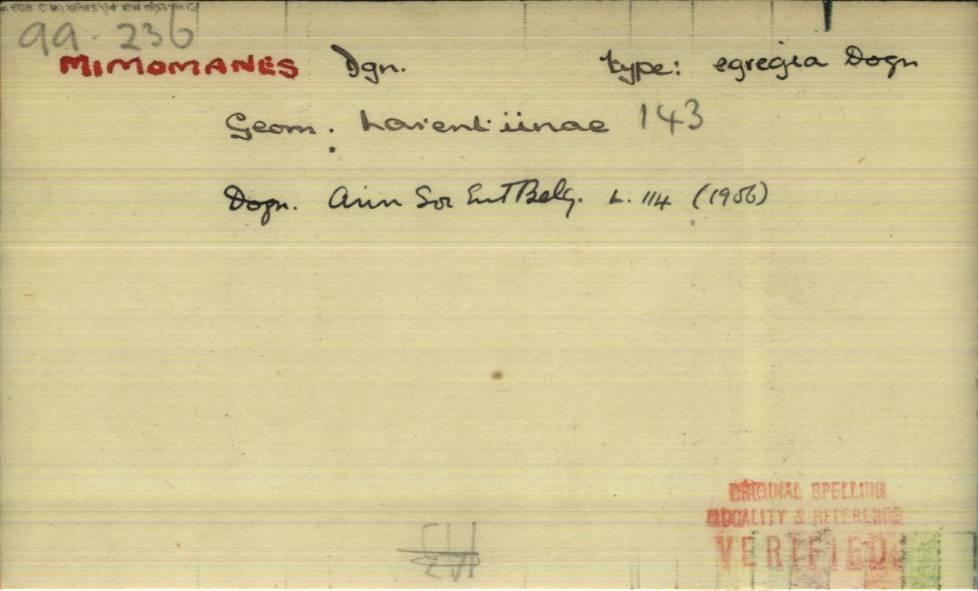 99-236
MIMOMANES Dgn. type: egregia Dogn
Geom. Larentiinae 143
Dogn. Ann Soc Ent Belg. L. 114 (1906)
ORIGINAL SPELLING
LOCALITY & REFERENCE
VERIFIED